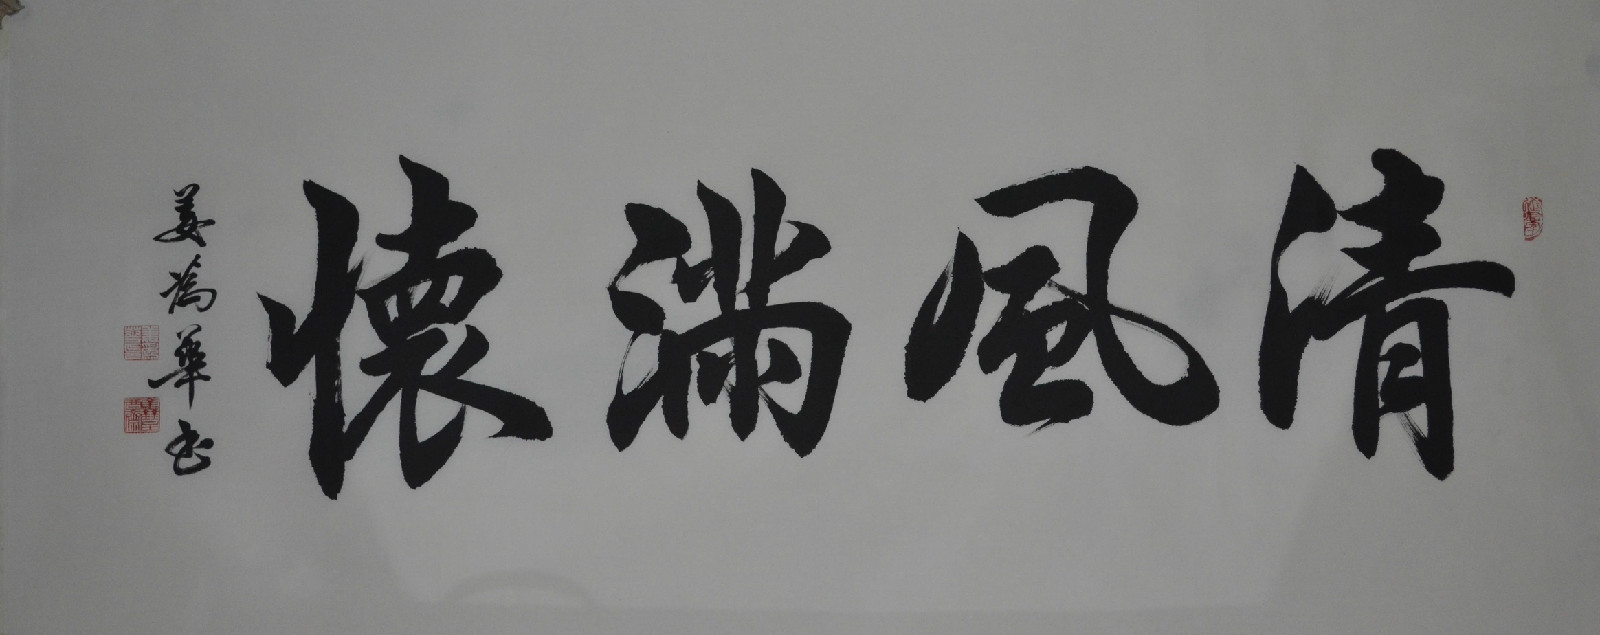 清風滿懷
姜萬華書